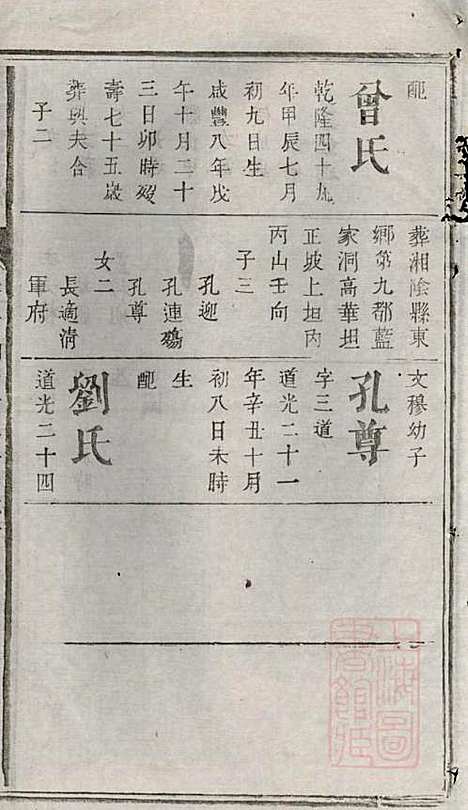 配
曾氏
乾隆四十九
年甲辰七月
初九日生
咸豐八年戊
午十月二十
三日卯時歿
壽七十五歲
葬與夫合
子二
葬湘陰縣東
鄉第九都藍
家洞高華坦
正坡上坦內
丙山壬向
子三
孔迎
孔連殤
孔尊
女二
長適淸
軍府
文穆幼子
孔尊
字三道
道光二十一
年辛丑十月
初八日未時
生
配
劉氏
道光二十四
上海圖
書館藏